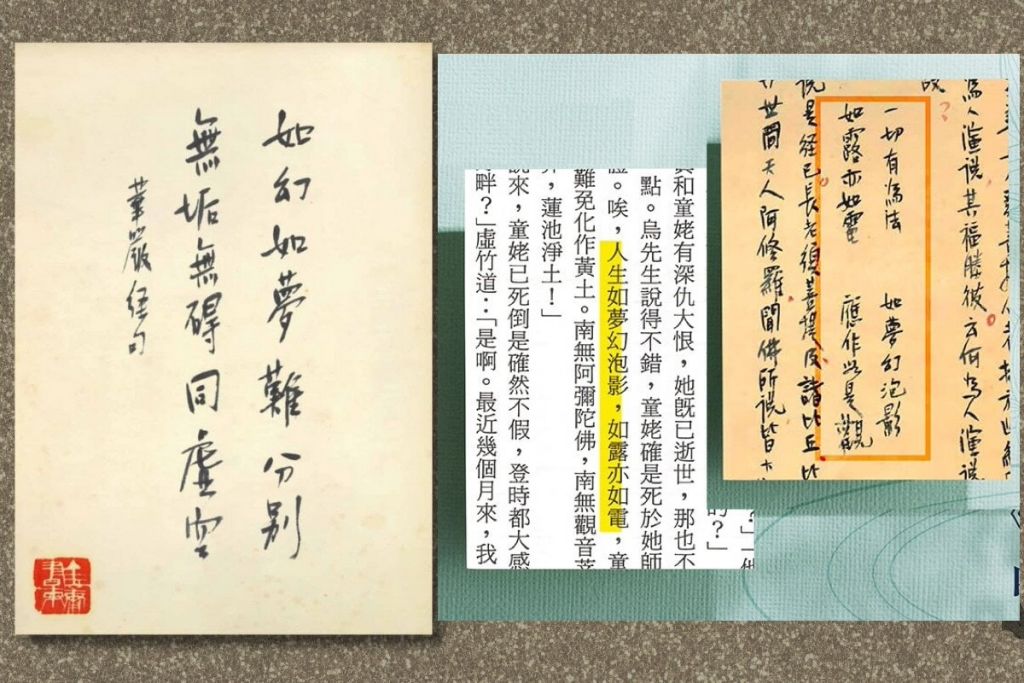 如幻如夢難分別
無垢無礙同虛空
華嚴經句
的?」
和童姥有深仇大恨,她既已逝世,那也不
點。烏先生說得不錯,童姥確是死於她師
。唉,人生如夢幻泡影,如露亦如電,童
難免化作黃土。南無阿彌陀佛,南無觀音菩
,蓮池淨土!」
說來,童姥已死倒是確然不假,登時都大感
畔?」虛竹道:「是啊。最近幾個月來,我
為人演說其福勝彼云何為人演說
一切有為法 如夢幻泡影
如露亦如電 應作如是觀
說是經已長老須菩提及諸比丘比
世間天人阿修羅聞佛所說皆大